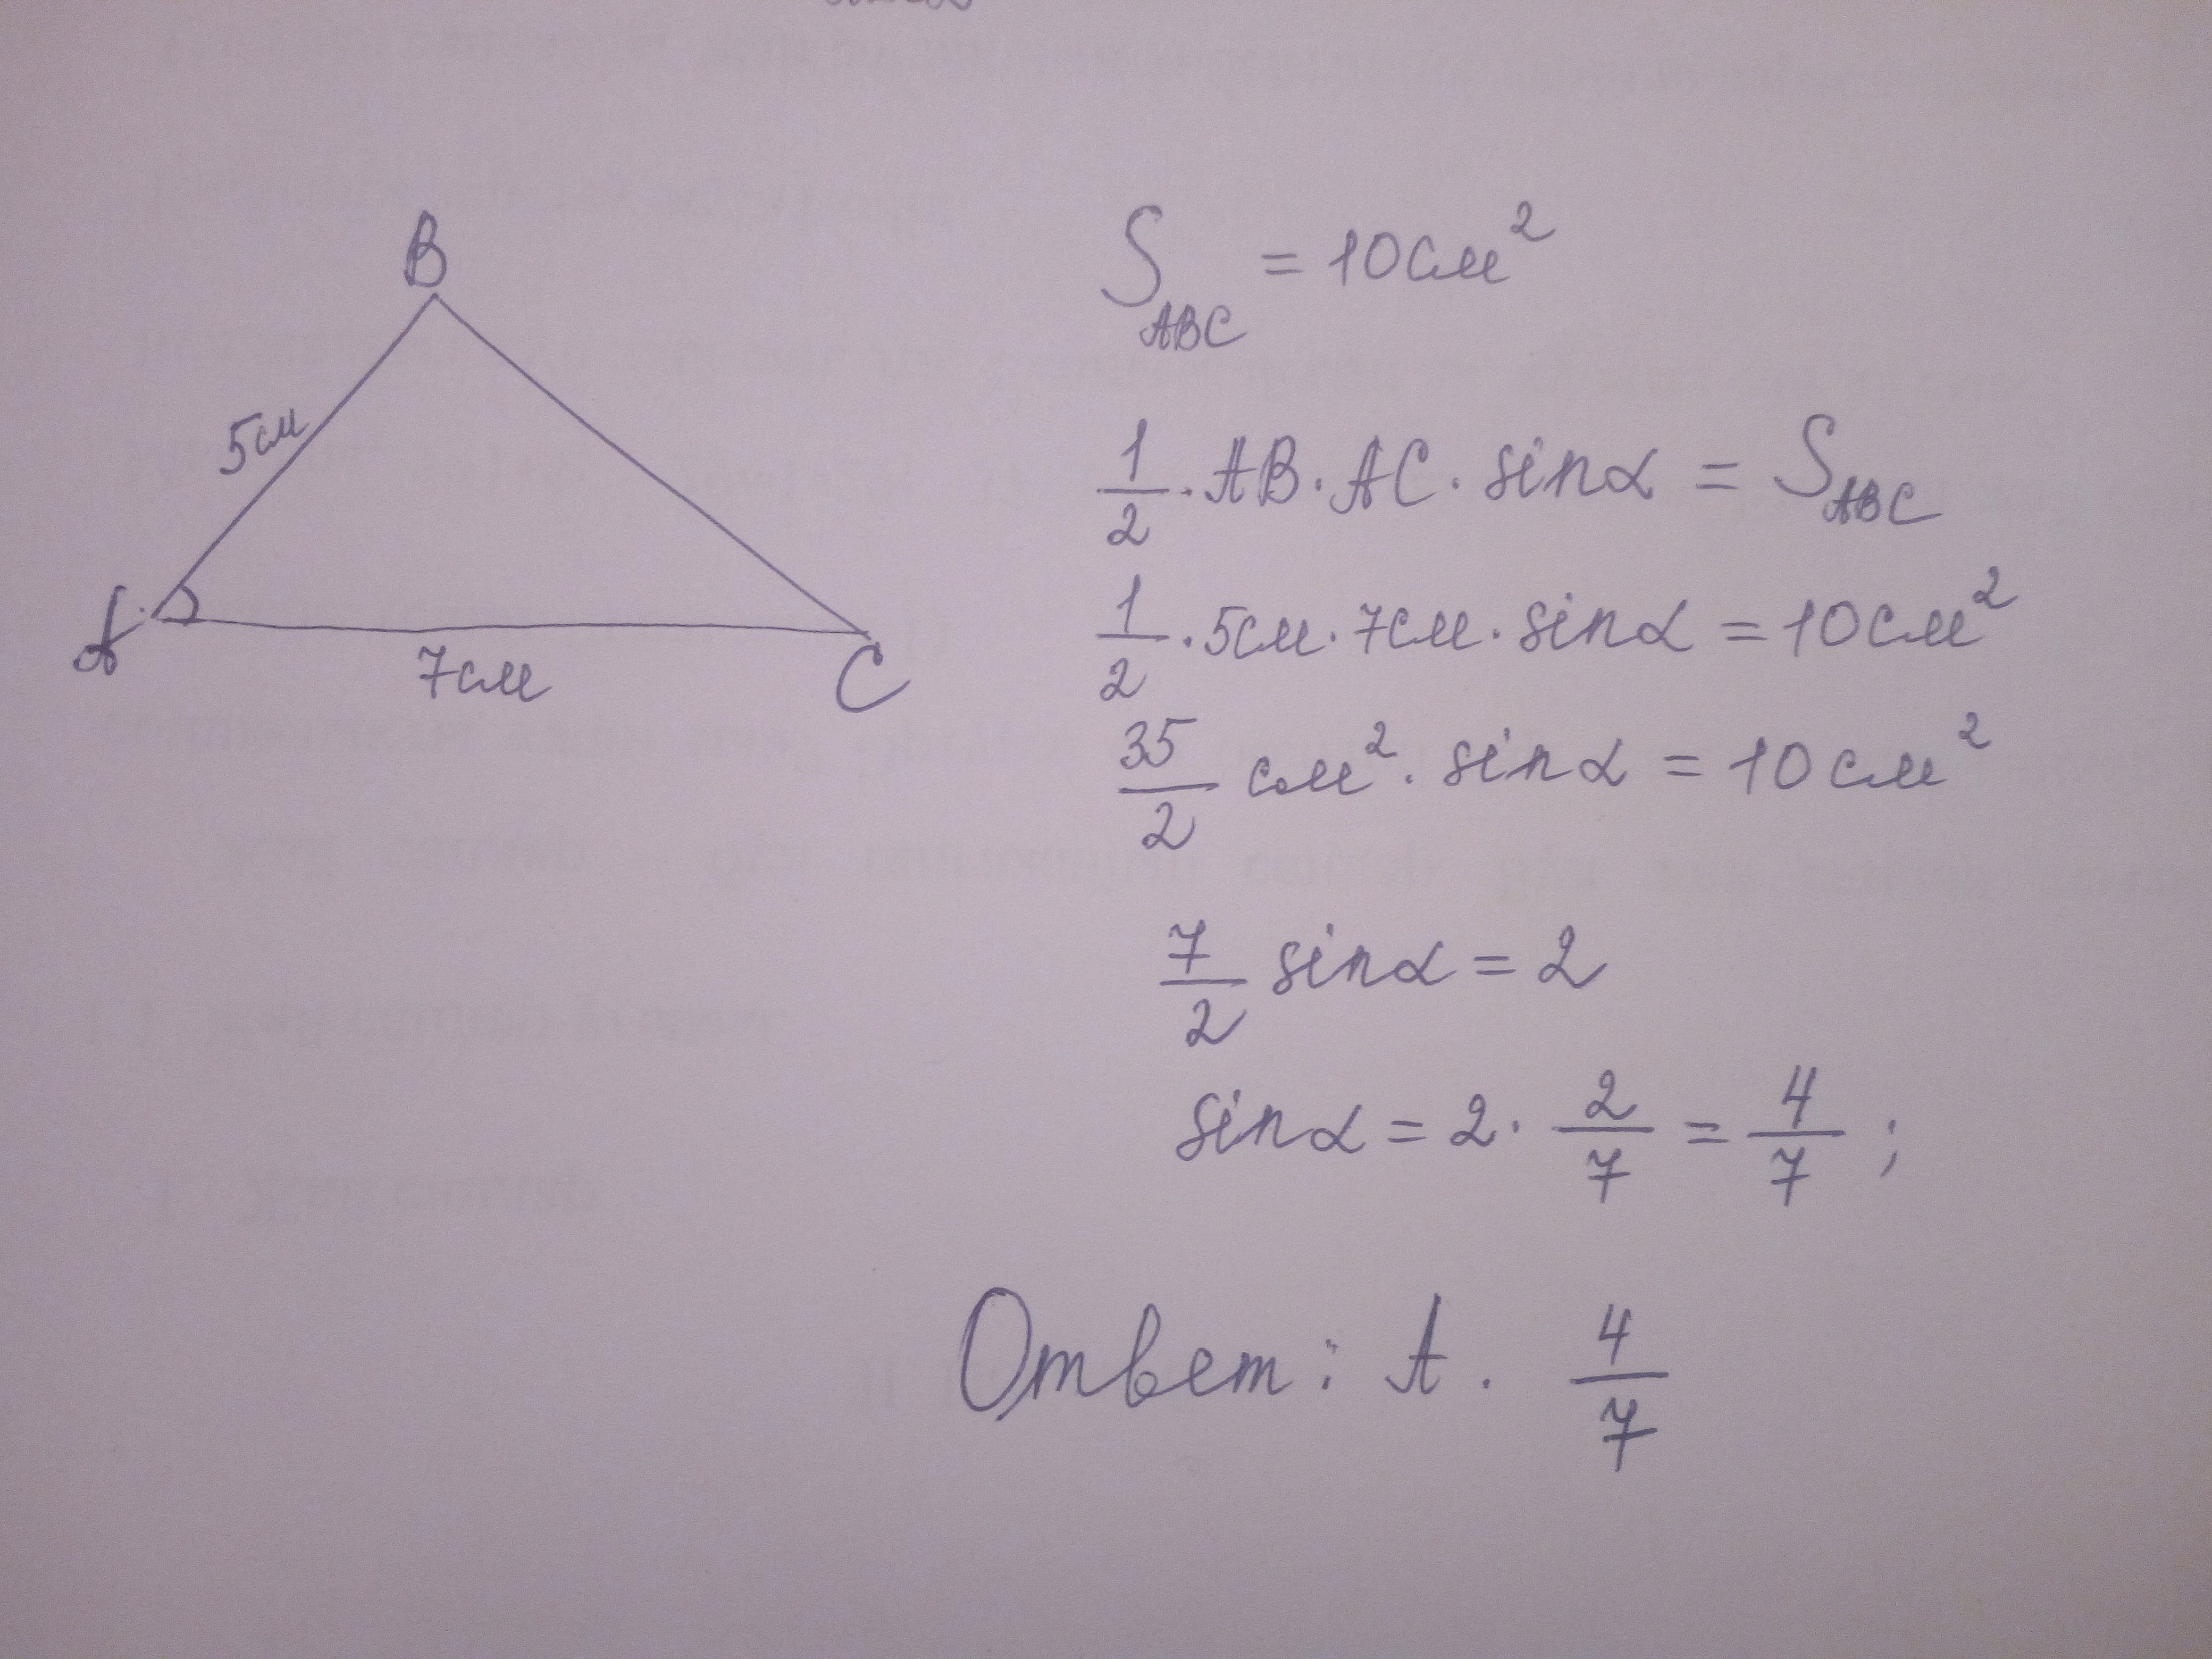 B
5см
A
7см
C
S_ABC = 10см²
1/2 · AB · AC · sinα = S_ABC
1/2 · 5см · 7см · sinα = 10см²
35/2 см² · sinα = 10см²
7/2 sinα = 2
sinα = 2 · 2/7 = 4/7 ;
Ответ: A. 4/7